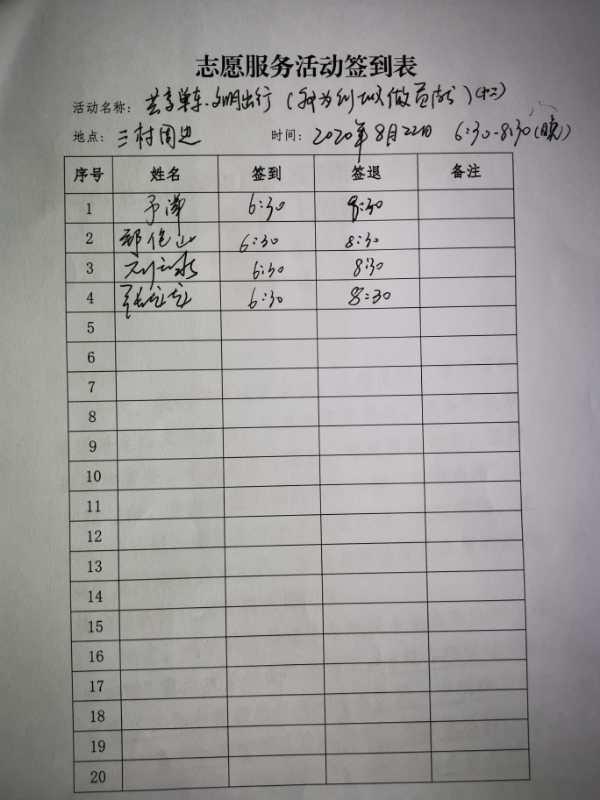 志愿服务活动签到表
活动名称：共享单车.文明出行（我为创城做贡献）（十二）
地点：三村周边 时间：2020年8月22日 6:30-8:30（晚）
序号 姓名 签到 签退 备注
1 6:30 8:30
2 6:30 8:30
3 6:30 8:30
4 6:30 8:30
5
6
7
8
9
10
11
12
13
14
15
16
17
18
19
20